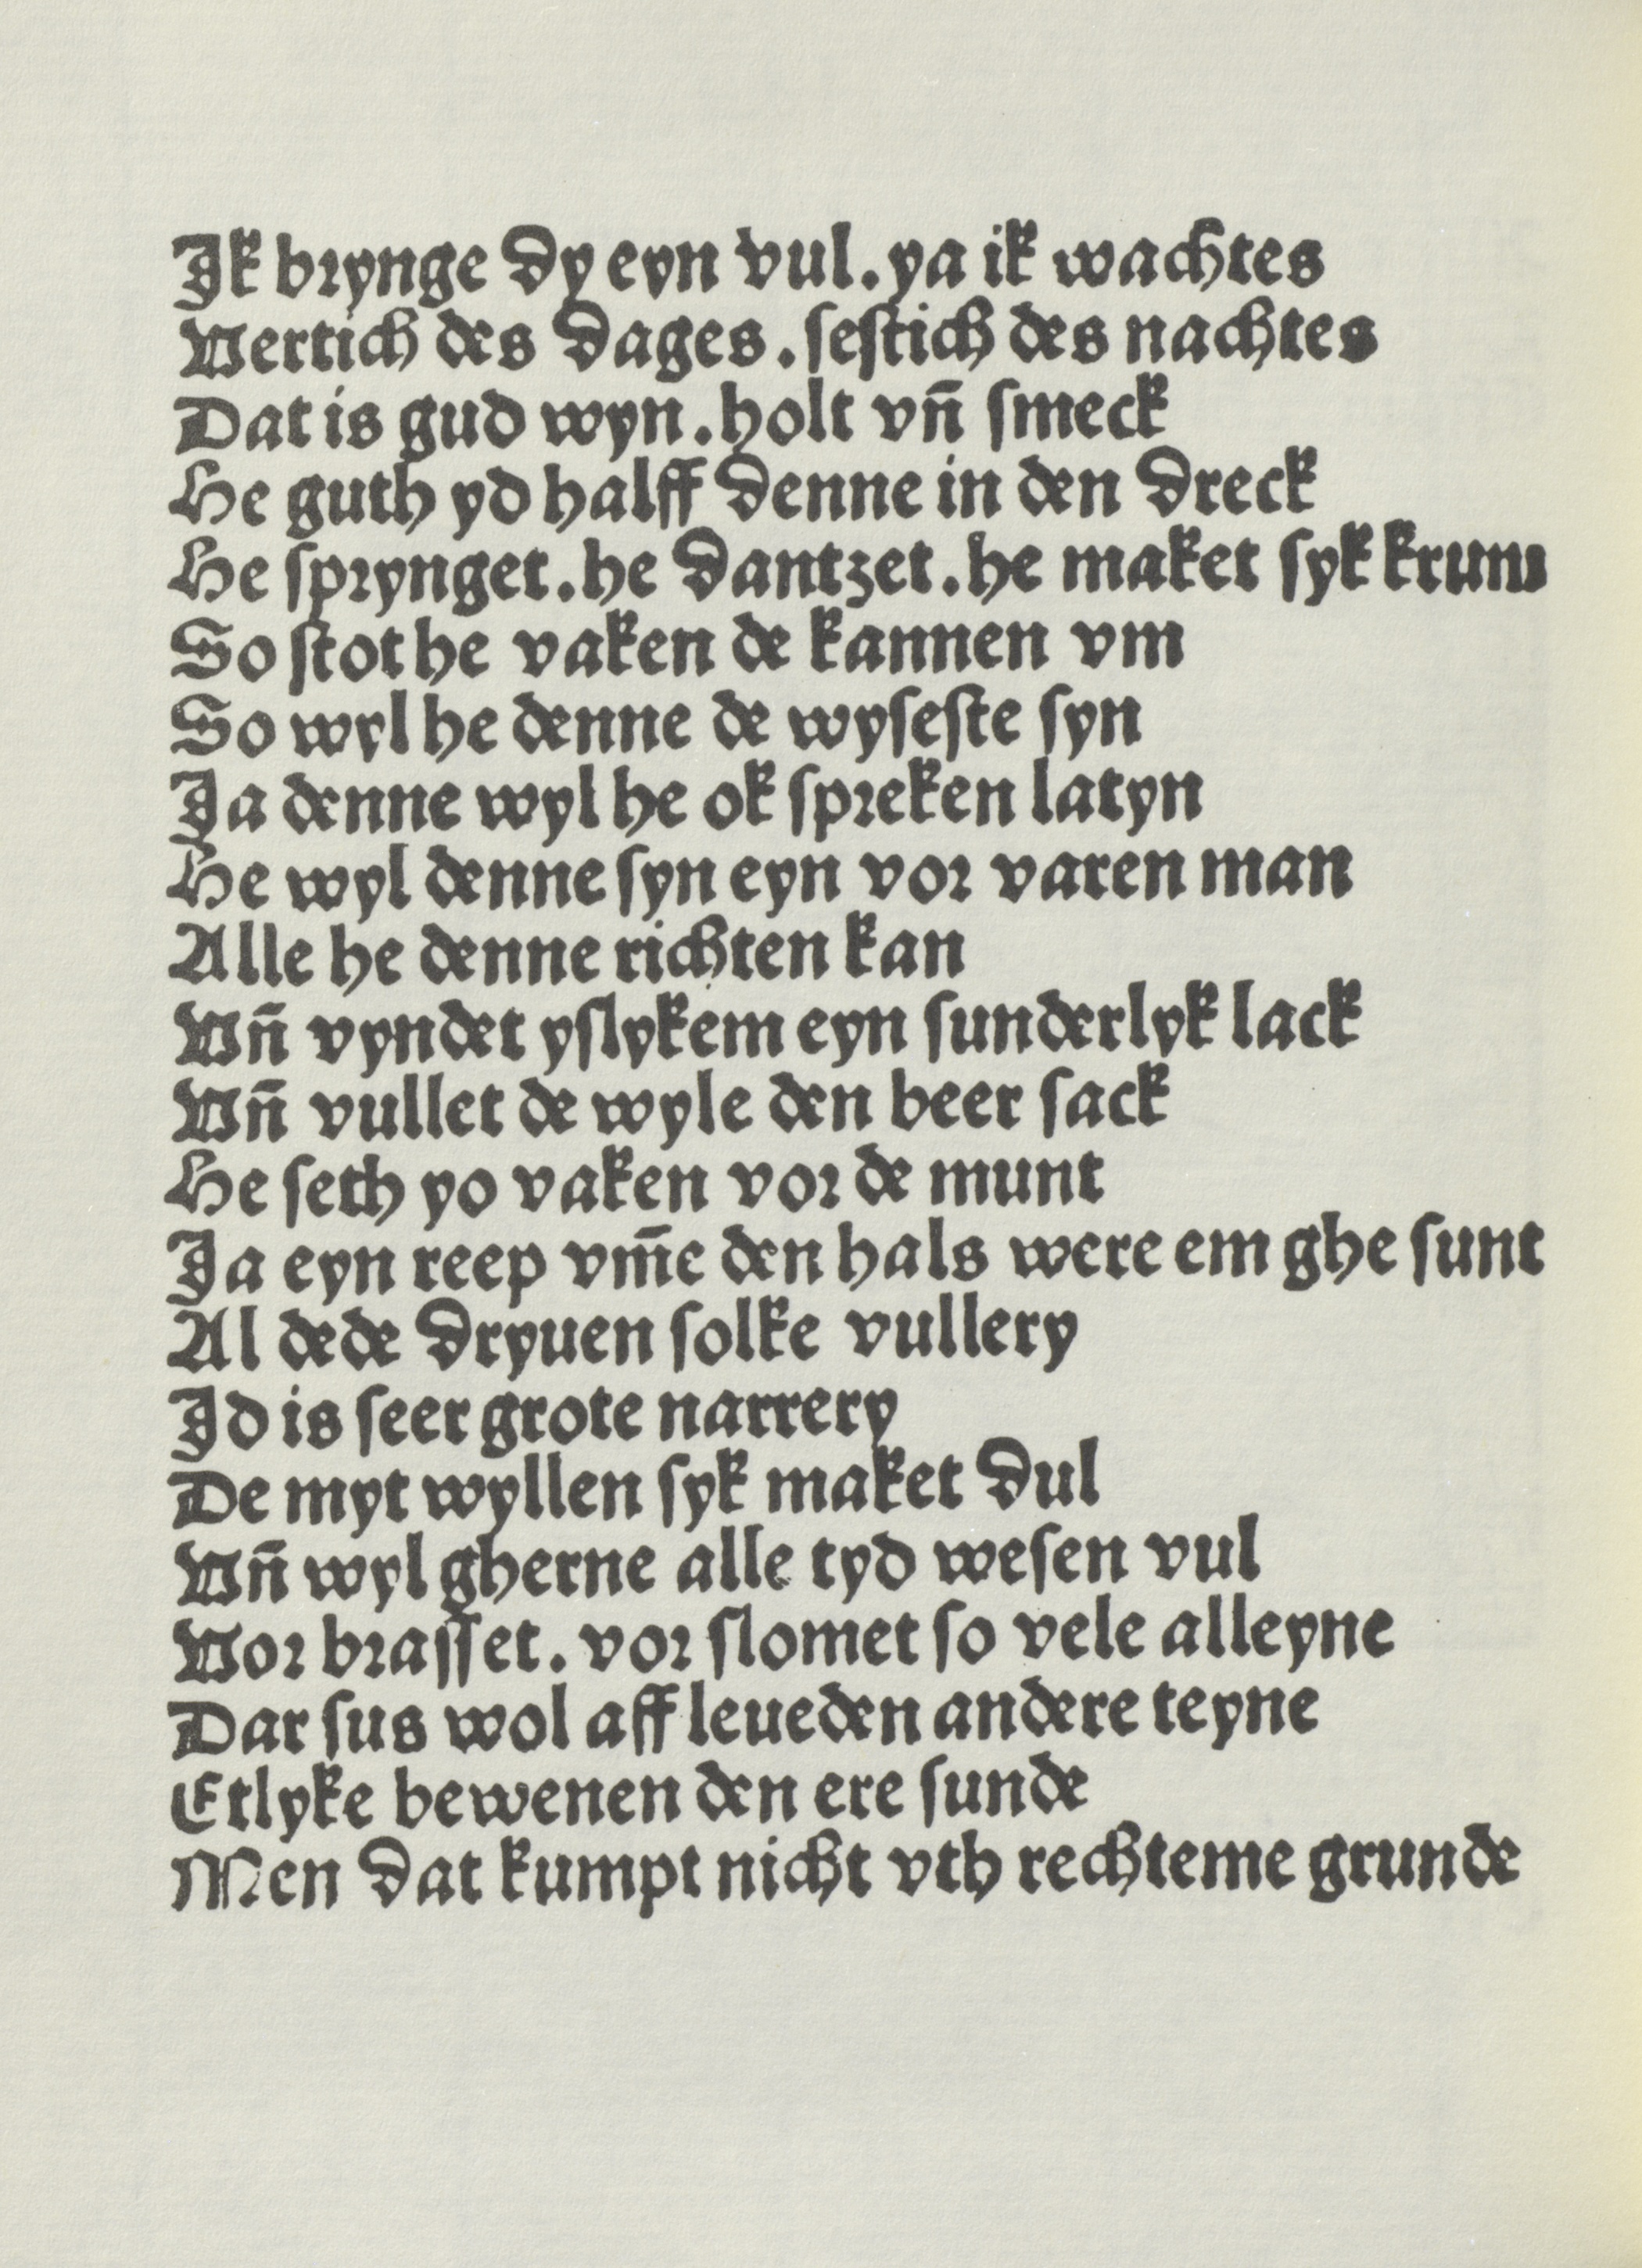 Ik brynge dy eyn vul. ya ik wachtes
Vertich des dages. ſeſtich des nachtes
Dat is gud wyn. holt vn̄ ſmeck
He guth yd halff denne in den dreck
He ſprynget. he dantzet. he maket ſyk krum
So ſtot he vaken de kannen vm
So wyl he denne de wyſeſte ſyn
Ja denne wyl he ok ſpreken latyn
He wyl denne ſyn eyn vor varen man
Alle he denne richten kan
Vn̄ vyndet yſlykem eyn ſunderlyk lack
Vn̄ vullet de wyle den beer ſack
He ſeth yo vaken vor de munt
Ja eyn reep vm̄e den hals were em ghe ſunt
Al dede dryuen ſolke vullery
Id is ſeer grote narrery
De myt wyllen ſyk maket dul
Vn̄ wyl gherne alle tyd weſen vul
Vor braſſet. vor ſlomet ſo vele alleyne
Dar ſus wol aff leueden andere teyne
Etlyke bewenen den ere ſunde
Men dat kumpt nicht vth rechteme grunde